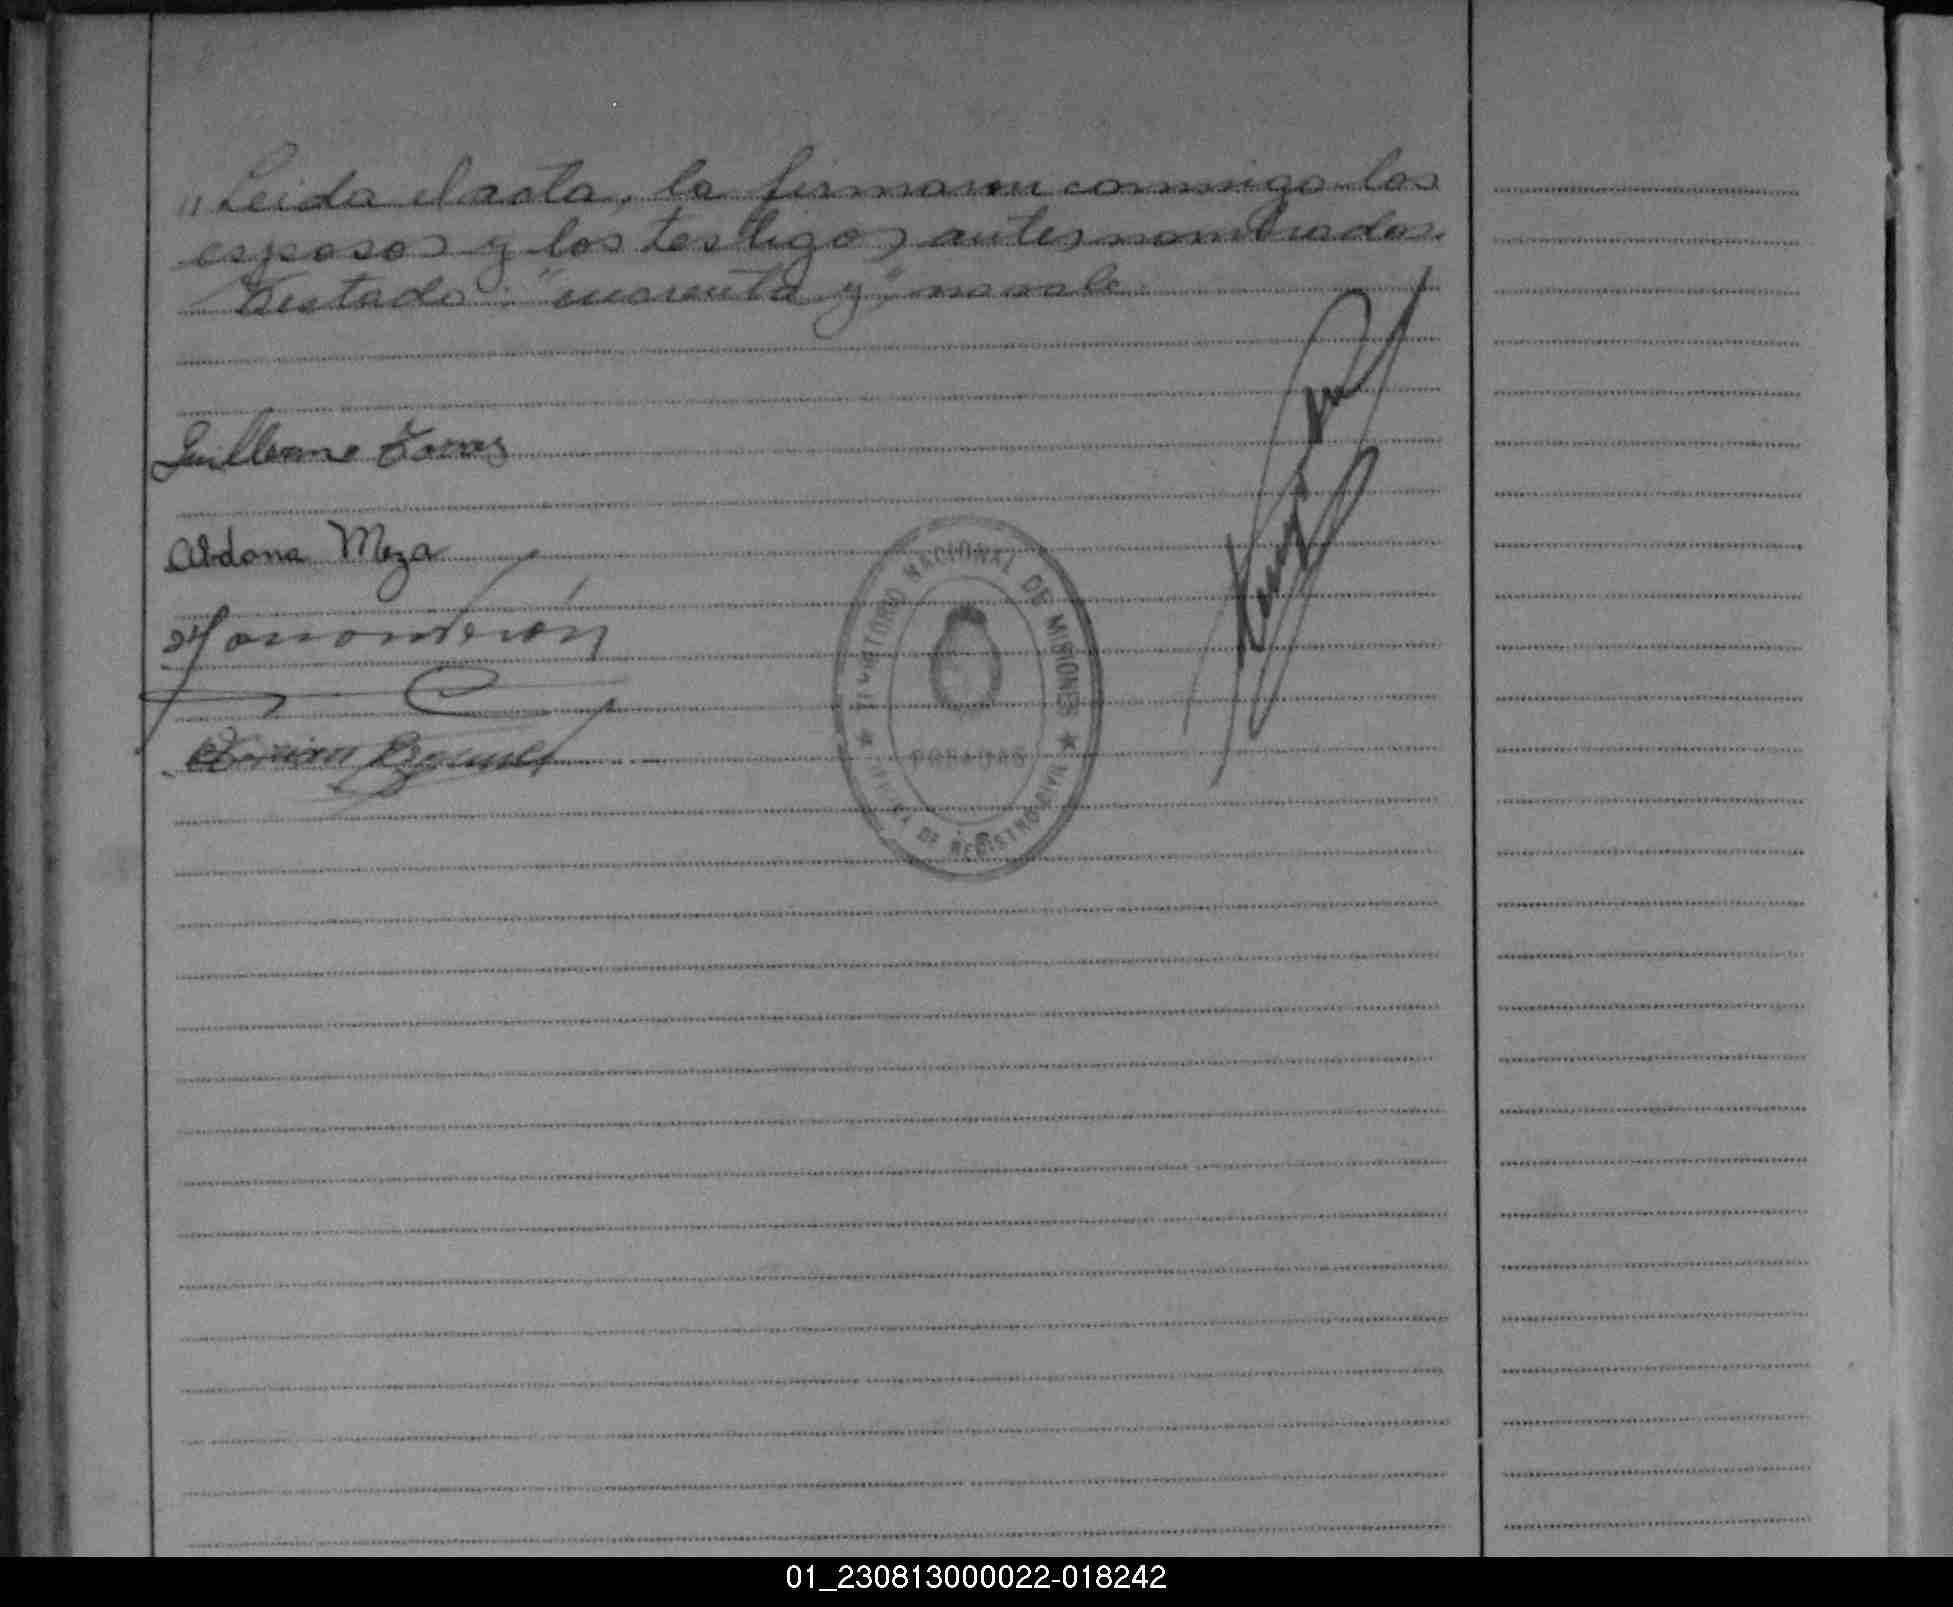 "Leida el acta, la firmaron conmigo los
esposos y los testigos antes nombrados.
Testado: "cuarenta y" no vale.
Guillermo Torres
Abdona Meza
TERRITORIO NACIONAL DE MISIONES
POSADAS
OFICINA DE REGISTRO CIVIL
01_230813000022-018242